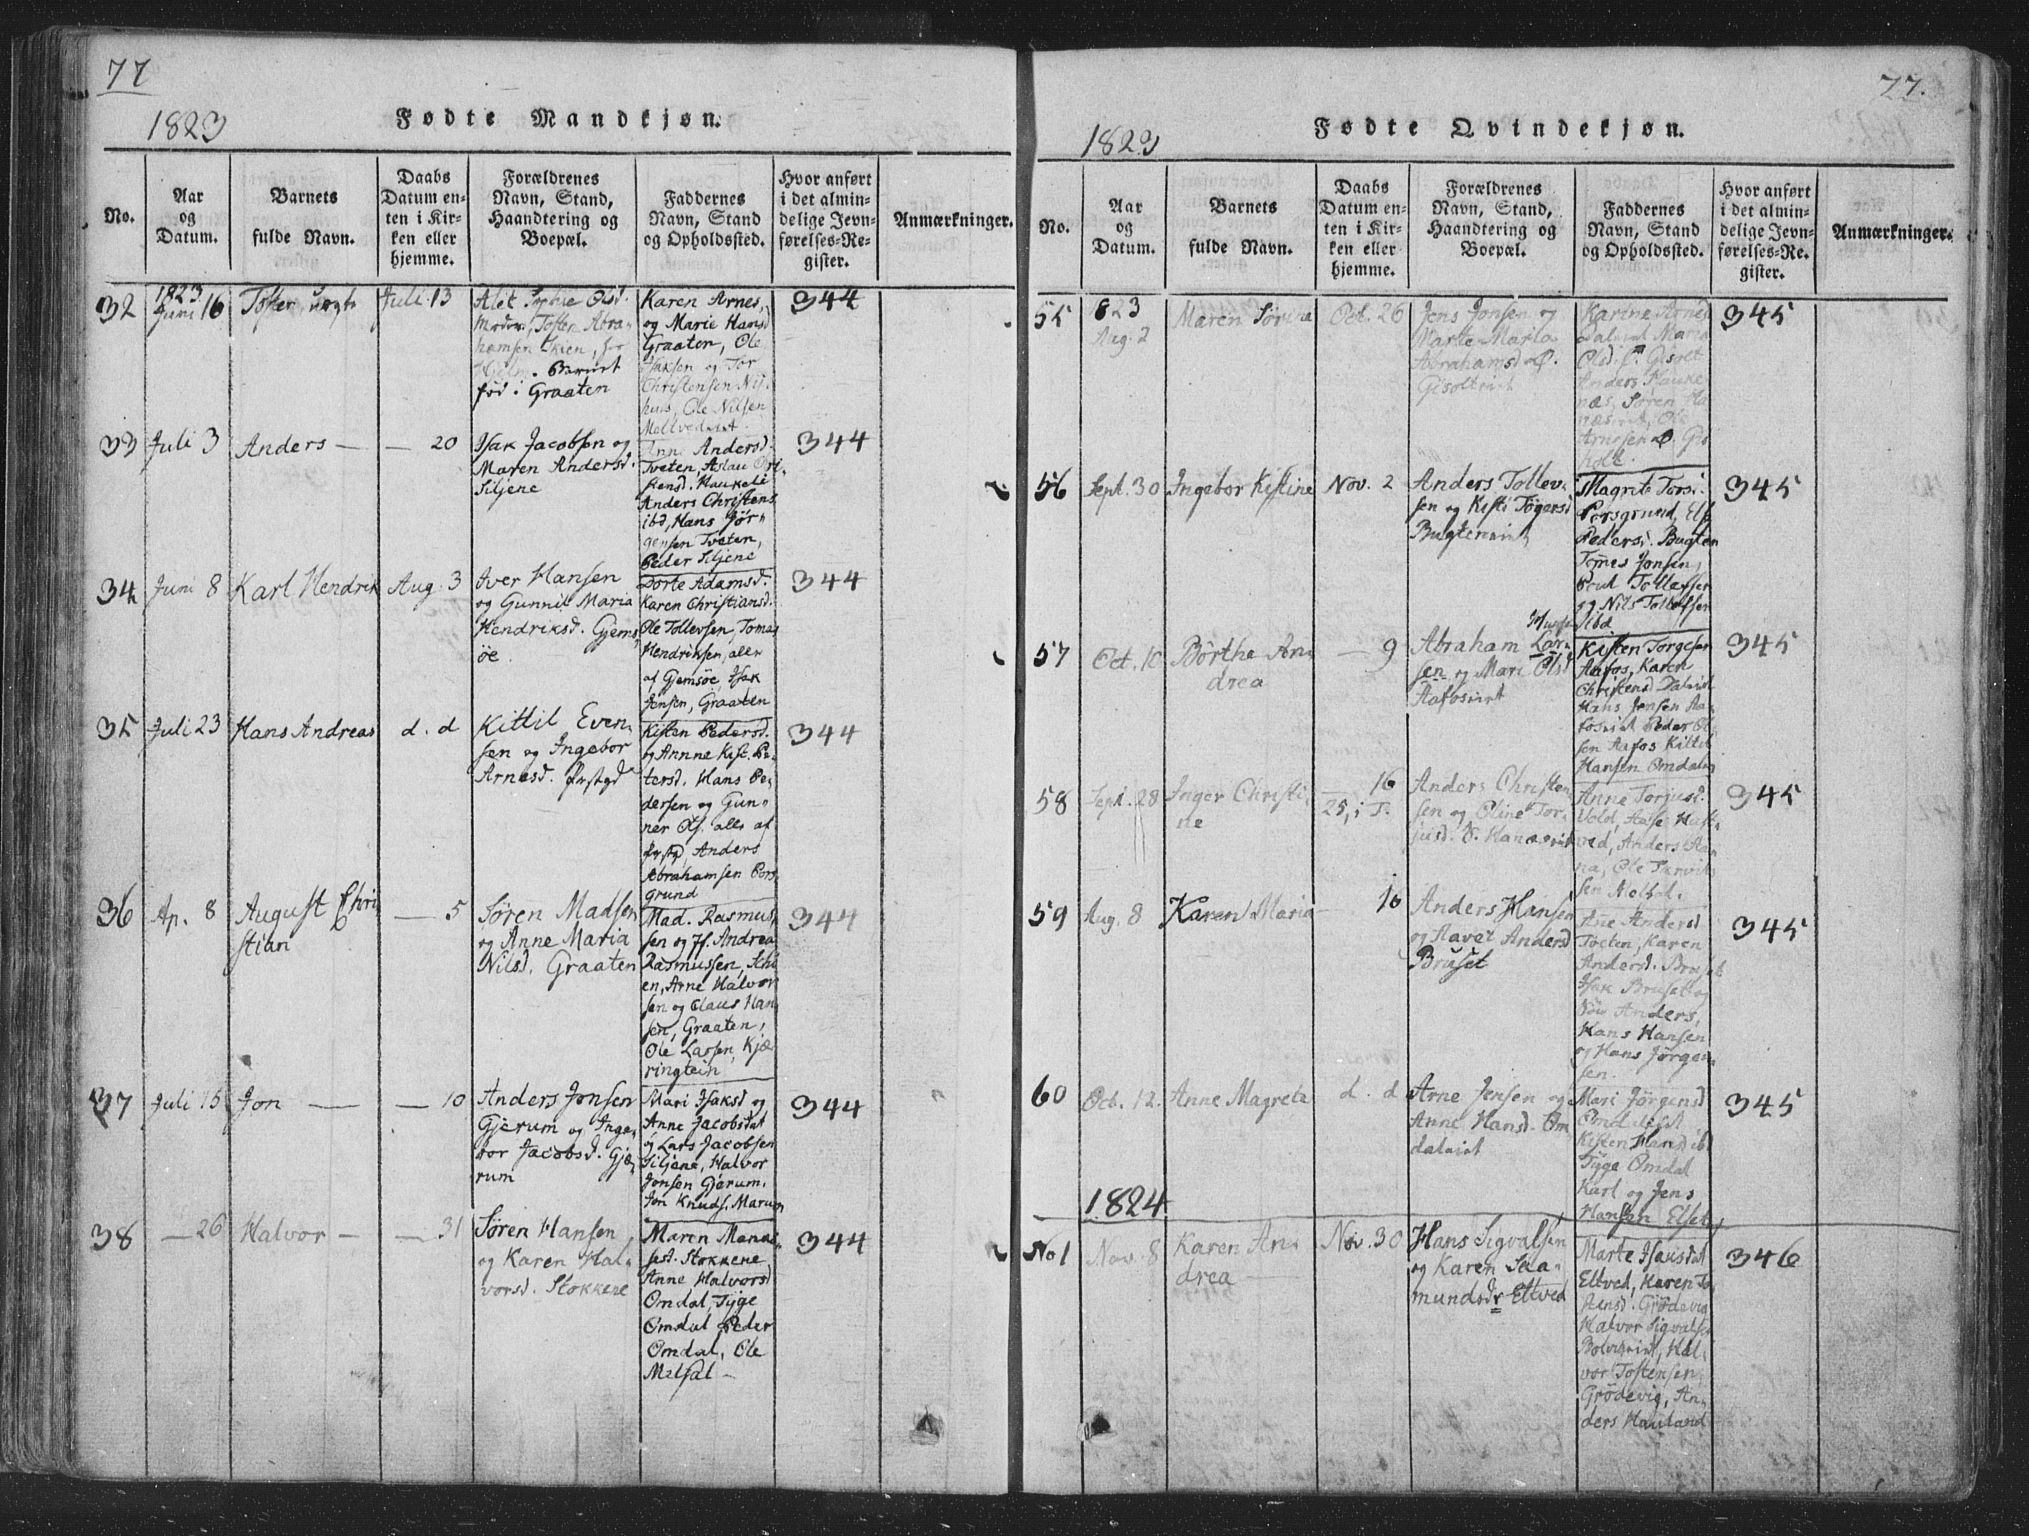 77
1823
Fødte Mandkjøn.
No.
Aar
og
Datum.
Barnets
fulde Navn.
Daabs
Datum en-
ten i Kir-
ken eller
hjemme.
Forældrenes
Navn, Stand,
Haandtering og
Boepæl.
Faddernes
Navn, Stand
og Opholdssted.
Hvor anført
i det almin-
delige Jevn-
førelses-Re-
gister.
Anmærkninger.
32
1823
Juni 16
Tosten
Juli 13
Alet Sophie Olsd.
Moder, Tosten Abra-
hamsen Skien,
Barnet
fød i Graaten
Karen Arnes,
og Marie Hansd
Graaten, Ole
Isaksen og Tor
Christensen Nis-
huus, Ole Nilsen
344
33
Juli 3
Anders —
— 20
Isak Jacobsen og
Maren Andersd.
Siljene
Anne Andersd.
Tveten, Aslau Cri-
stensd. Haukeli
Anders Christens
ibd, Hans Jør-
gensen Tveten,
Peder Siljene
344
34
Juni 8
Karl Hendrik
Aug. 3
Iver Hansen
og Gunnil Maria
Hendriksd. Gjems
øe
Dorte Adamsd.
Karen Christiansd.
Ole Tollevsen, Tomas
Hendriksen, alle
af Gjemsøe, Isak
Jensen, Graaten
344
35
Juli 23
Hans Andreas
d. d
Kittil Even-
sen og Ingebor
Arnesd.
Kisten Pedersd.
og Annne Kist. Pe-
tersd. Hans Pe-
dersen og Gun-
ner Ols. alle af
Anders
Abrahamsen Pors
grund
344
36
Ap. 8
August Chri
stian
— 5
Søren Madsen
og Anne Maria
Nilsd. Graaten
Mad. Rasmus-
sen og Jf. Andrea
Rasmussen, Ski
en, Arne Halvor
sen og Claus Han
sen, Graaten,
Ole Larsen, Kjæ
ringtein
344
37
Juli 15
Jon —
— 10
Anders Jonsen
Gjerum og Inge-
bor Jacobsd. Gjæ-
rum
Mari Isaksd og
Anne Jacobsdat
og Lars Jacobsen
Siljene, Halvor
Jonsen Gjerum.
Jon Knuds. Marum
344
38
— 26
Halvor —
— 31
Søren Hansen
og Karen Hal-
vorsd. Stokkene
Maren Manas-
sesd. Stokkene
Anne Halvorsd
Omdal, Tyge
Omdal, Peder
Omdal, Ole
Melsal —
344
77.
1823
Fødte Qvindekjøn.
No.
Aar
og
Datum.
Barnets
fulde Navn.
Daabs
Datum en-
ten i Kir-
ken eller
hjemme.
Forældrenes
Navn, Stand,
Haandtering og
Boepæl.
Faddernes
Navn, Stand
og Opholdssted.
Hvor anført
i det almin-
delige Jevn-
førelses-Re-
gister.
Anmærkninger.
55
823
Aug. 2
Maren Sørine
Oct. 26
Jens Jonsen og
Marte Maria
Abrahamsd Ø.
Gisolteiet
Karine Arnesd
Anders Hauke-
næs, Søren Ha
Arnesen Ø. Gis
holt.
345
56
Sept. 30
Ingebor Kistine
Nov. 2
Anders Tollev-
sen og Kisti Tøgersd
Bugteneiet
Magrite Torsd.
Porsgrund, Els
Pedersd. Bugten
Tomes Jonsen,
Poul Tollefsen
og Nils Tollefsen
ibd
345
57
Oct. 10
Börthe An-
drea
— 9
Abraham Lar-
sen og Mari Olsd
Aafoseiet
Kisten Torgesen
Aafos, Karen
Christensd Daleiet
Hans Jensen Aa-
foseiet Peder Ol
sen Aafos Kittil
Hansen Omdalen
345
58
Sept. 28
Inger Christi-
ne
— 16
25, i T.
Anders Christen-
sen og Oline Tor-
jusd. V. Hanæseiet
Anne Torjusd.
Vold, Aase Hust-
ved, Anders Han
na, Ole Tarvil-
sen Melsal.
345
59
Aug. 8
Karen Maria
— 16
Anders Hansen
og Aavet Andersd
Bruset
Ane Andersd
Tveten, Karen
Andersd. Bruset
Isak Bruset og
Anders,
Hans Hansen
og Hans Jørgen-
sen.
345
60
Octb. 12.
Anne Magreta
d. d
Arne Jensen og
Anne Hansd. Om
daleiet
Mari Jörgensd
Omdaleiet
Kisten Hansd ibd
Tyge Omdal
Karl og Jens
Hansen Elset
345
1824
No 1
Nov. 8
Karen An-
drea —
Nov. 30
Hans Sigvalsen
og Karen Saa-
mundsdr Eltved
Marte Isaksdat
Eltved, Karen To
stensd. Grödevig
Halvor Sigvalse
Bolvigeiet, Hal-
vor Tostensen,
Grödevig, An-
ders Hauland
346